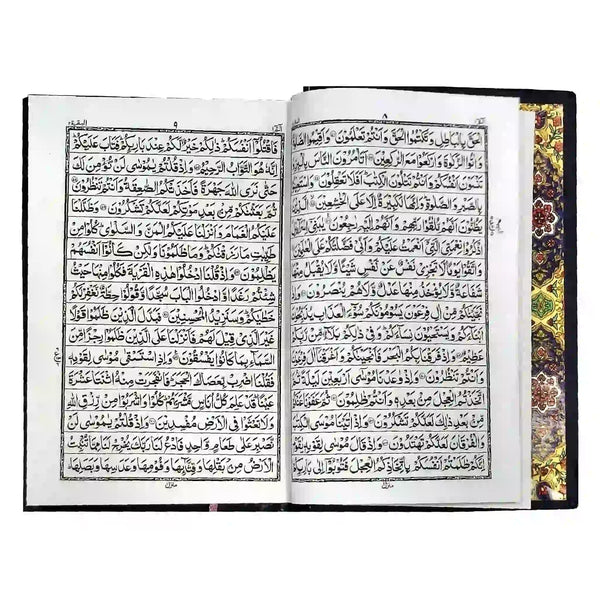 ٨
الحَقَّ بِالْبَاطِلِ وَتَكْتُمُوا الْحَقَّ وَأَنْتُمْ تَعْلَمُونَ وَاَقِيمُوا الصَّلٰوةَ
وَاٰتُوا الزَّكٰوةَ وَارْكَعُوْا مَعَ الرّٰكِعِيْنَ اَتَاْمُرُوْنَ النَّاسَ بِالْبِرِّ وَ
تَنْسَوْنَ اَنْفُسَكُمْ وَاَنْتُمْ تَتْلُوْنَ الْكِتٰبَ اَفَلَا تَعْقِلُوْنَ وَاسْتَعِيْنُوْا
بِالصَّبْرِ وَالصَّلٰوةِ وَاِنَّهَا لَكَبِيْرَةٌ اِلَّا عَلَى الْخٰشِعِيْنَ الَّذِيْنَ
يَظُنُّوْنَ اَنَّهُمْ مُّلٰقُوْا رَبِّهِمْ وَاَنَّهُمْ اِلَيْهِ رٰجِعُوْنَ يٰبَنِيْٓ اِسْرَآءِيْلَ
اذْكُرُوْا نِعْمَتِيَ الَّتِيْٓ اَنْعَمْتُ عَلَيْكُمْ وَاَنِّيْ فَضَّلْتُكُمْ عَلَى الْعٰلَمِيْنَ
وَاتَّقُوْا يَوْمًا لَّا تَجْزِيْ نَفْسٌ عَنْ نَّفْسٍ شَيْـًٔا وَّلَا يُقْبَلُ مِنْهَا
شَفَاعَةٌ وَّلَا يُؤْخَذُ مِنْهَا عَدْلٌ وَّلَا هُمْ يُنْصَرُوْنَ وَاِذْ نَجَّيْنٰكُمْ
مِّنْ اٰلِ فِرْعَوْنَ يَسُوْمُوْنَكُمْ سُوْٓءَ الْعَذَابِ يُذَبِّحُوْنَ اَبْنَآءَكُمْ
وَيَسْتَحْيُوْنَ نِسَآءَكُمْ وَفِيْ ذٰلِكُمْ بَلَآءٌ مِّنْ رَّبِّكُمْ
عَظِيْمٌ وَاِذْ فَرَقْنَا بِكُمُ الْبَحْرَ فَاَنْجَيْنٰكُمْ وَاَغْرَقْنَآ اٰلَ فِرْعَوْنَ
وَاَنْتُمْ تَنْظُرُوْنَ وَاِذْ وٰعَدْنَا مُوْسٰٓى اَرْبَعِيْنَ لَيْلَةً ثُمَّ اتَّخَذْتُمُ
الْعِجْلَ مِنْۢ بَعْدِهٖ وَاَنْتُمْ ظٰلِمُوْنَ ثُمَّ عَفَوْنَا عَنْكُمْ مِّنْۢ
بَعْدِ ذٰلِكَ لَعَلَّكُمْ تَشْكُرُوْنَ وَاِذْ اٰتَيْنَا مُوْسَى الْكِتٰبَ
وَالْفُرْقَانَ لَعَلَّكُمْ تَهْتَدُوْنَ وَاِذْ قَالَ مُوْسٰى لِقَوْمِهٖ يٰقَوْمِ
اِنَّكُمْ ظَلَمْتُمْ اَنْفُسَكُمْ بِاتِّخَاذِكُمُ الْعِجْلَ فَتُوْبُوْٓا اِلٰى بَارِئِكُمْ
٩
البقرة
فَاقْتُلُوْٓا اَنْفُسَكُمْ ذٰلِكُمْ خَيْرٌ لَّكُمْ عِنْدَ بَارِئِكُمْ فَتَابَ عَلَيْكُمْ
اِنَّهٗ هُوَ التَّوَّابُ الرَّحِيْمُ وَاِذْ قُلْتُمْ يٰمُوْسٰى لَنْ نُّؤْمِنَ لَكَ
حَتّٰى نَرَى اللّٰهَ جَهْرَةً فَاَخَذَتْكُمُ الصّٰعِقَةُ وَاَنْتُمْ تَنْظُرُوْنَ
ثُمَّ بَعَثْنٰكُمْ مِّنْۢ بَعْدِ مَوْتِكُمْ لَعَلَّكُمْ تَشْكُرُوْنَ وَظَلَّلْنَا
عَلَيْكُمُ الْغَمَامَ وَاَنْزَلْنَا عَلَيْكُمُ الْمَنَّ وَالسَّلْوٰى كُلُوْا مِنْ
طَيِّبٰتِ مَا رَزَقْنٰكُمْ وَمَا ظَلَمُوْنَا وَلٰكِنْ كَانُوْٓا اَنْفُسَهُمْ
يَظْلِمُوْنَ وَاِذْ قُلْنَا ادْخُلُوْا هٰذِهِ الْقَرْيَةَ فَكُلُوْا مِنْهَا حَيْثُ
شِئْتُمْ رَغَدًا وَّادْخُلُوا الْبَابَ سُجَّدًا وَّقُوْلُوْا حِطَّةٌ نَّغْفِرْ لَكُمْ
خَطٰيٰكُمْ وَسَنَزِيْدُ الْمُحْسِنِيْنَ فَبَدَّلَ الَّذِيْنَ ظَلَمُوْا قَوْلًا
غَيْرَ الَّذِيْ قِيْلَ لَهُمْ فَاَنْزَلْنَا عَلَى الَّذِيْنَ ظَلَمُوْا رِجْزًا مِّنَ
السَّمَآءِ بِمَا كَانُوْا يَفْسُقُوْنَ وَاِذِ اسْتَسْقٰى مُوْسٰى لِقَوْمِهٖ
فَقُلْنَا اضْرِبْ بِّعَصَاكَ الْحَجَرَ فَانْفَجَرَتْ مِنْهُ اثْنَتَا عَشْرَةَ
عَيْنًا قَدْ عَلِمَ كُلُّ اُنَاسٍ مَّشْرَبَهُمْ كُلُوْا وَاشْرَبُوْا مِنْ رِّزْقِ اللّٰهِ
وَلَا تَعْثَوْا فِى الْاَرْضِ مُفْسِدِيْنَ وَاِذْ قُلْتُمْ يٰمُوْسٰى لَنْ
نَّصْبِرَ عَلٰى طَعَامٍ وَّاحِدٍ فَادْعُ لَنَا رَبَّكَ يُخْرِجْ لَنَا مِمَّا تُنْۢبِتُ
الْاَرْضُ مِنْۢ بَقْلِهَا وَقِثَّآئِهَا وَفُوْمِهَا وَعَدَسِهَا وَبَصَلِهَا